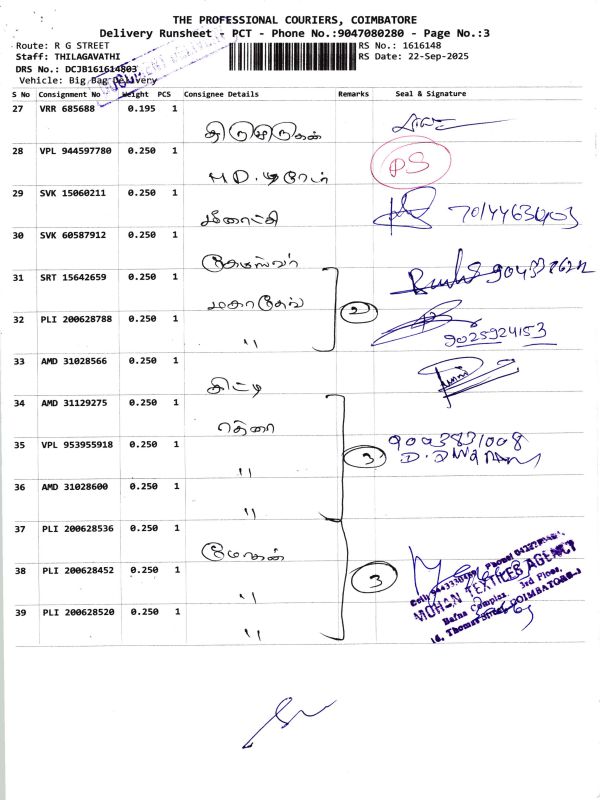 THE PROFESSIONAL COURIERS, COIMBATORE
Delivery Runsheet - PCT - Phone No.:9047080280 - Page No.:3
Route: R G STREET
RS No.: 1616148
Staff: THILAGAVATHI
RS Date: 22-Sep-2025
DRS No.: DCJB161614803
Vehicle: Big Bag Delivery
S No Consignment No Weight PCS Consignee Details Remarks Seal & Signature
27 VRR 685688 0.195 1
திருமுருகன்
28 VPL 944597780 0.250 1
M.D. டிரேடர்
PS
29 SVK 15060211 0.250 1
மீனாட்சி
30 SVK 60587912 0.250 1
31 SRT 15642659 0.250 1
மகாதேவ்
2
32 PLI 200628788 0.250 1
"
9025924153
33 AMD 31028566 0.250 1
34 AMD 31129275 0.250 1
35 VPL 953955918 0.250 1
"
3
9003831008
36 AMD 31028600 0.250 1
"
37 PLI 200628536 0.250 1
மோகன்
38 PLI 200628452 0.250 1
"
3
MOHAN TEXTILES AGENCY
39 PLI 200628520 0.250 1
"